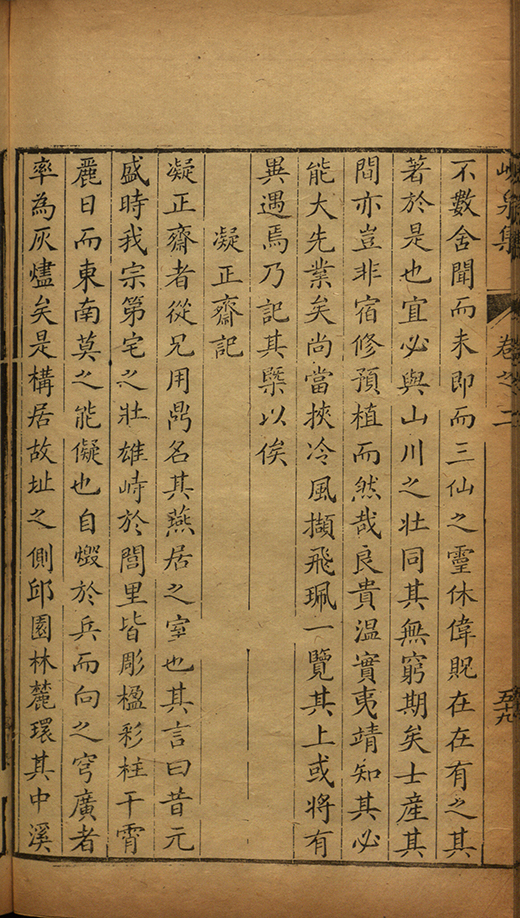 峴泉集 卷之二 五十九
不數舍聞而未即而三仙之靈休偉貺在在有之其
著於是也宜必與山川之壯同其無窮期矣士產其
間亦豈非宿修預植而然哉良貴溫實夷靖知其必
能大先業矣尚當挾冷風擷飛珮一覽其上或將有
異遇焉乃記其槩以俟
凝正齋記
凝正齋者從兄用鼎名其燕居之室也其言曰昔元
盛時我宗第宅之壯雄峙於閭里皆彫楹彩柱干霄
麗日而東南莫之能儗也自燬於兵而向之穹廣者
率為灰燼矣是構居故址之側邱園林麓環其中溪